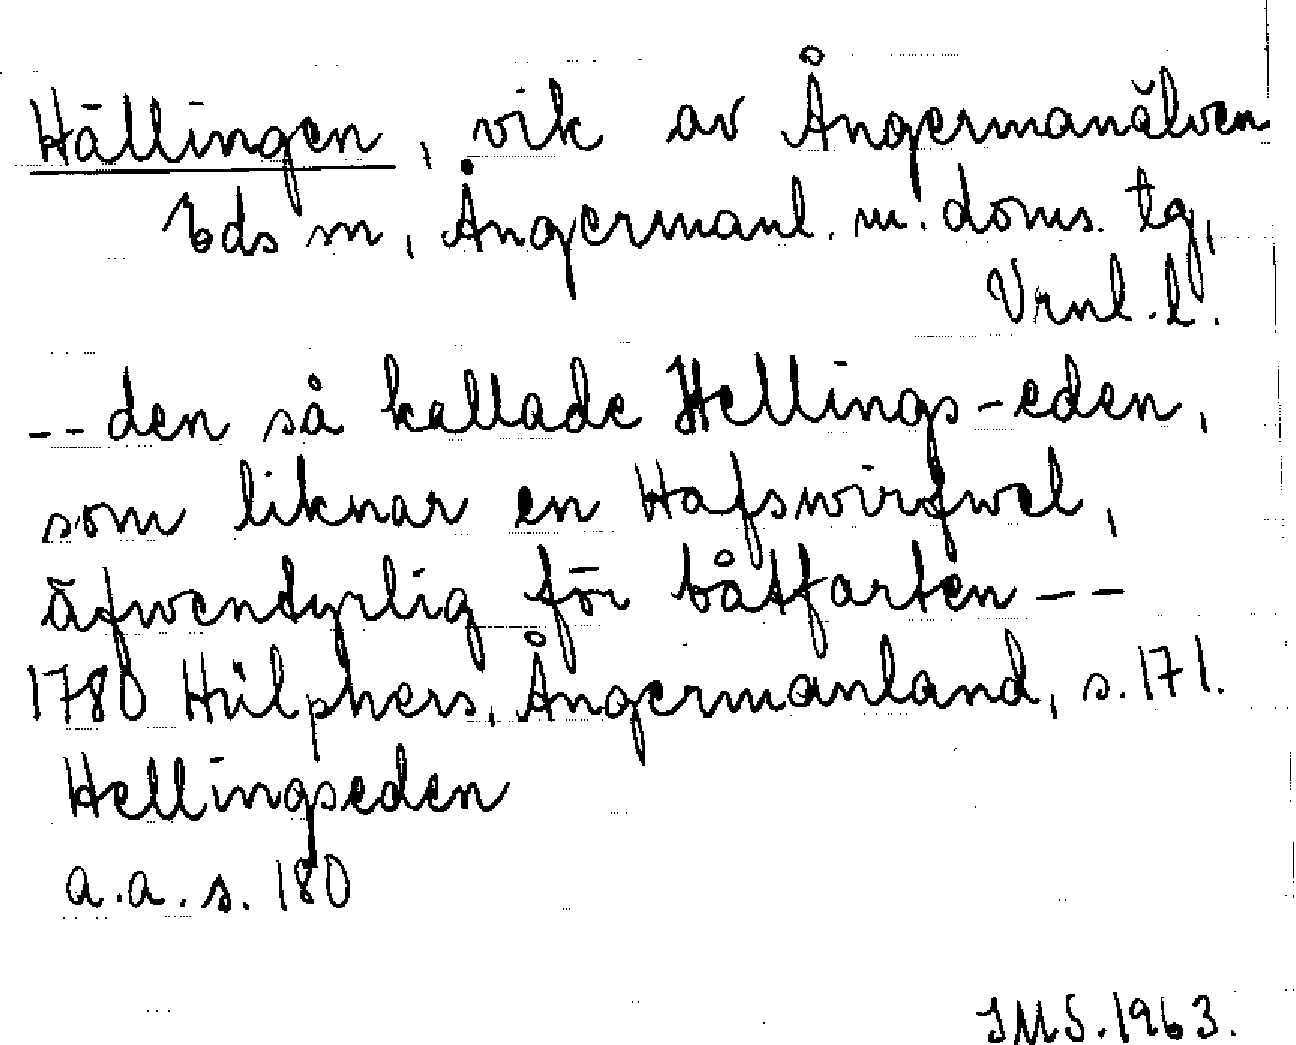 Hällingen, vik av Ångermanälven
Eds sn, Ångermanl. m. doms. tg,
Vrnl. l.
-- den så kallade Hellings-eden,
som liknar en Hafswirfwel,
äfwentyrlig för båtfarten --
1780 Hülphers, Ångermanland, s. 171.
Hellingseden
a.a. s. 180
IMS. 1963.